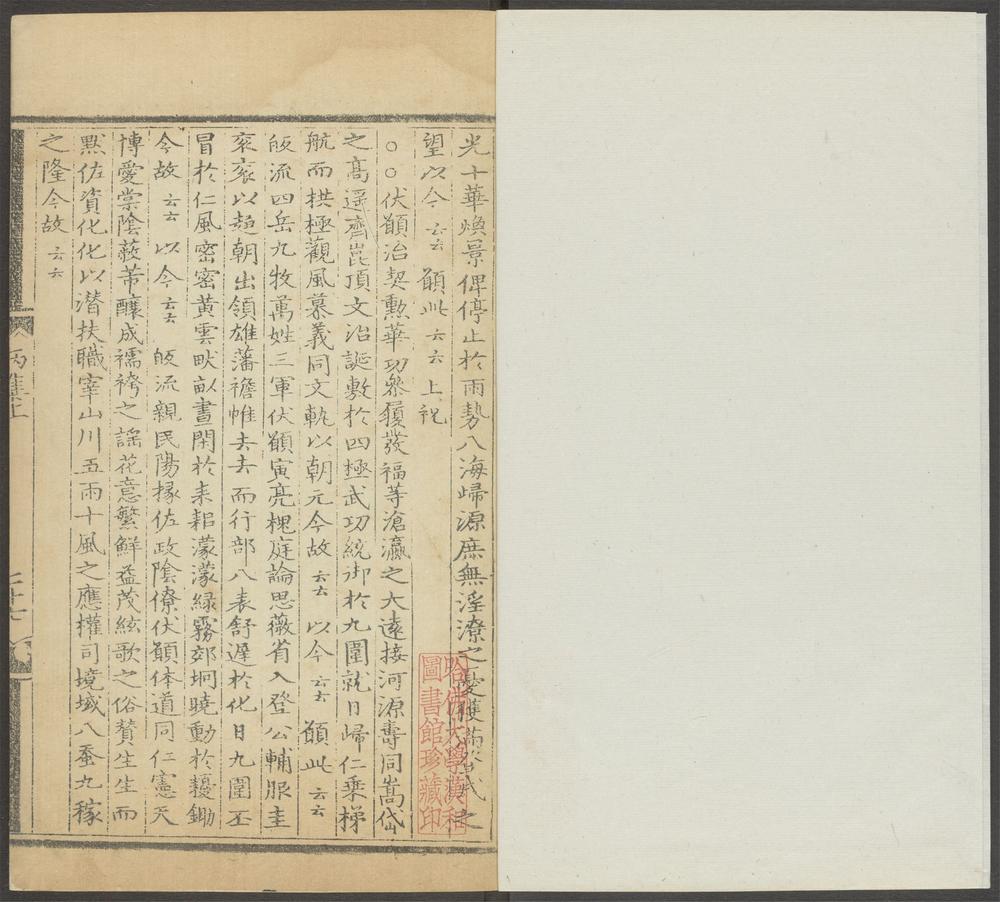 光十華煥景俾停止於雨勢八海歸源庶無淫潦之憂雙之
望以今云云願此云云上祝
○○伏願治契勲華功叅履發福等滄瀛之大遠接河源壽同嵩岱
之高遥齊崑頂文治誕敷於四極武功統御於九圍就日歸仁乘梯
航而拱極觀風慕義同文軌以朝元今故云云以今云云願此云云
皈流四岳九牧萬姓三軍伏願寅亮槐庭論思薇省入登公輔服圭
衮衮以趨朝出領雄藩襜帷去去而行部八表舒遲於化日九圍丕
冒於仁風密密黃雲畎畝晝閑於耒耜濛濛緑霧郊坰曉動於耰鋤
今故云云以今云云皈流親民陽掾佐政陰僚伏願体道同仁憲天
博愛棠陰蔽芾釀成襦袴之謡花意繁鮮益茂絃歌之俗賛生生而
黙佐資化化以潜扶職宰山川五雨十風之應權司境域八蚕九稼
之隆今故云云
丙集上
二十七
哈佛大學漢和
圖書館珍藏印